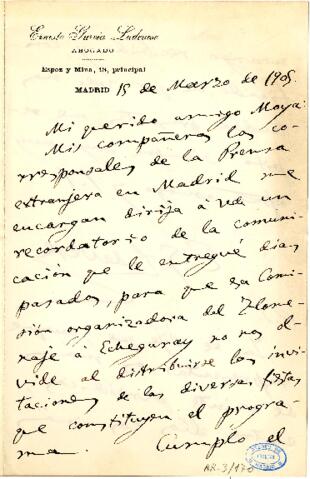 Ernesto García Ladevese
ABOGADO
Espoz y Mina, 18, principal
MADRID 15 de Marzo de 1905
Mi querido amigo Moya:
Mis compañeros los co-
rresponsales de la Prensa
extranjera en Madrid me
encargan dirija á Vd. un
recordatorio de la comuni-
cación que le entregué dias
pasados, para que esa Comi-
sión organizadora del Home-
naje á Echegaray no nos ol-
vide al distribuirse las invi-
taciones de las diversas fiestas
que constituyen el progra-
ma. Cumplo el
AR-3/170